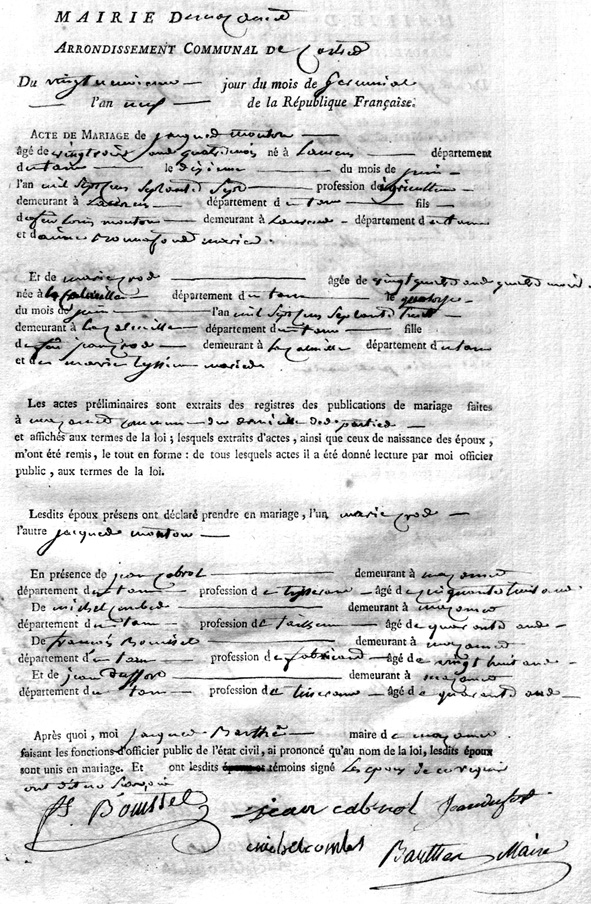 MAIRIE De
ARRONDISSEMENT COMMUNAL DE Castres
Du vingt neuvieme jour du mois de Germinal
l'an neuf de la République Française.
ACTE DE MARIAGE de jacques mouton
âgé de vingt trois ans quatre mois né à département
du tarn le dixieme du mois de juin
l'an mil sept cens septante sept profession d'agriculteur
demeurant à département du tarn fils
de feu louis mouton demeurant à département du tarn
et d' mariés.
Et de marie rode âgée de vingt quatre ans quatre mois.
née à département du tarn le quatorze
du mois de juin l'an mil sept cens septante
demeurant à département du tarn fille
de feu jean rode demeurant à département du tarn
et de marie mariés
Les actes préliminaires sont extraits des registres des publications de mariage faites
à commune du domicile des parties
et affichés aux termes de la loi ; lesquels extraits d'actes, ainsi que ceux de naissance des époux,
m'ont été remis, le tout en forme : de tous lesquels actes il a été donné lecture par moi officier
public, aux termes de la loi.
Lesdits époux présens ont déclaré prendre en mariage, l'un marie rode
l'autre jacques mouton
En présence de jean cabrol demeurant à
département du tarn profession de tisseran âgé de cinquante huit ans
De michel combes demeurant à
département du tarn profession de tailleur âgé de quarante ans
De francois Bousset demeurant à
département du tarn profession de fabricant âgé de vingt huit ans
Et de jean duffort demeurant à
département du tarn profession de tisseran âgé de quarante ans
Après quoi, moi jacques Barthés maire de
faisant les fonctions d'officier public de l'état civil, ai prononcé qu'au nom de la loi, lesdits époux
sont unis en mariage. Et ont lesdits témoins signé les époux de ce requis
ont dit ne savoir
f. Bousset jean cabrol jean dufort
michel combes Barthés Maire